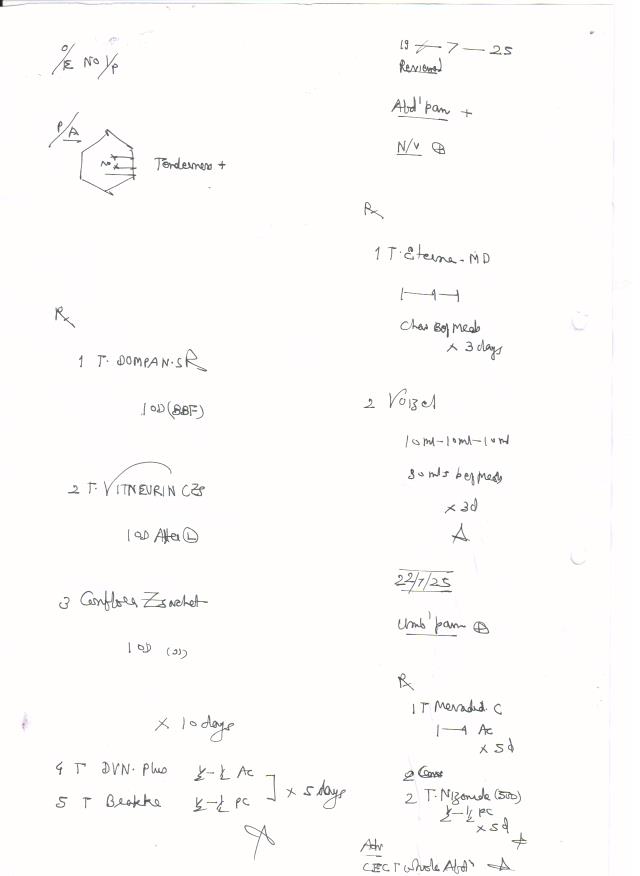 O/E No I/P
P/A
No
Tenderness +
Rx
1 T. DOMPAN.SR
1 OD (BBF)
2 T. VITNEURIN CZS
1 OD After L
3 Z sachet
1 OD
x 10 days
4 T DVN. Plus ½-½ Ac
5 T ½-½ PC
x 5 days
19-7-25
Reviewed
Abd' pain +
N/V ⊕
Rx
1 T. - MD
1-1-1
Chew Bef meals
x 3 days
2
10 ml-10ml-10ml
30 mts bef meals
x 3d
22/7/25
Umb' pain ⊕
Rx
1 T C
1-1 Ac
x 5d
2 T. Nizonide (500)
½-½ PC
x 5d
Adv
CECT whole Abd'